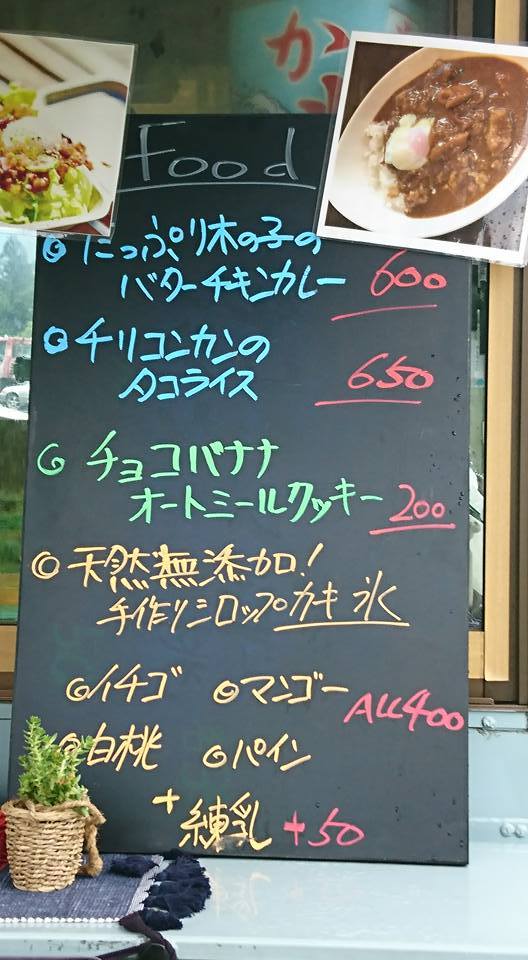 か
氷
Food
◎たっぷり木の子の
バターチキンカレー 600
◎チリコンカンの
タコライス 650
◎チョコバナナ
オートミールクッキー 200
◎天然無添加!
手作りシロップカキ氷
◎イチゴ ◎マンゴー ALL400
◎白桃 ◎パイン
+練乳 +50